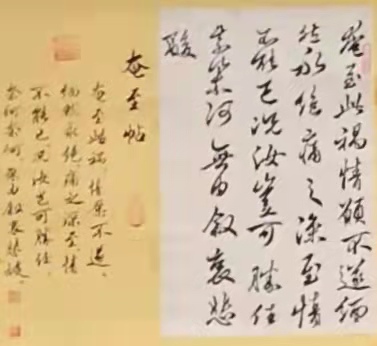 奄至此禍情願不遂緬
然永絕痛之深至情
不能已況汝豈可勝任
奈何奈何無由敘哀悲
酸
奄至帖
奄至此禍,情願不遂,
緬然永絕,痛之深至,情
不能已。況汝豈可勝任,
奈何奈何。無由敘哀悲酸。